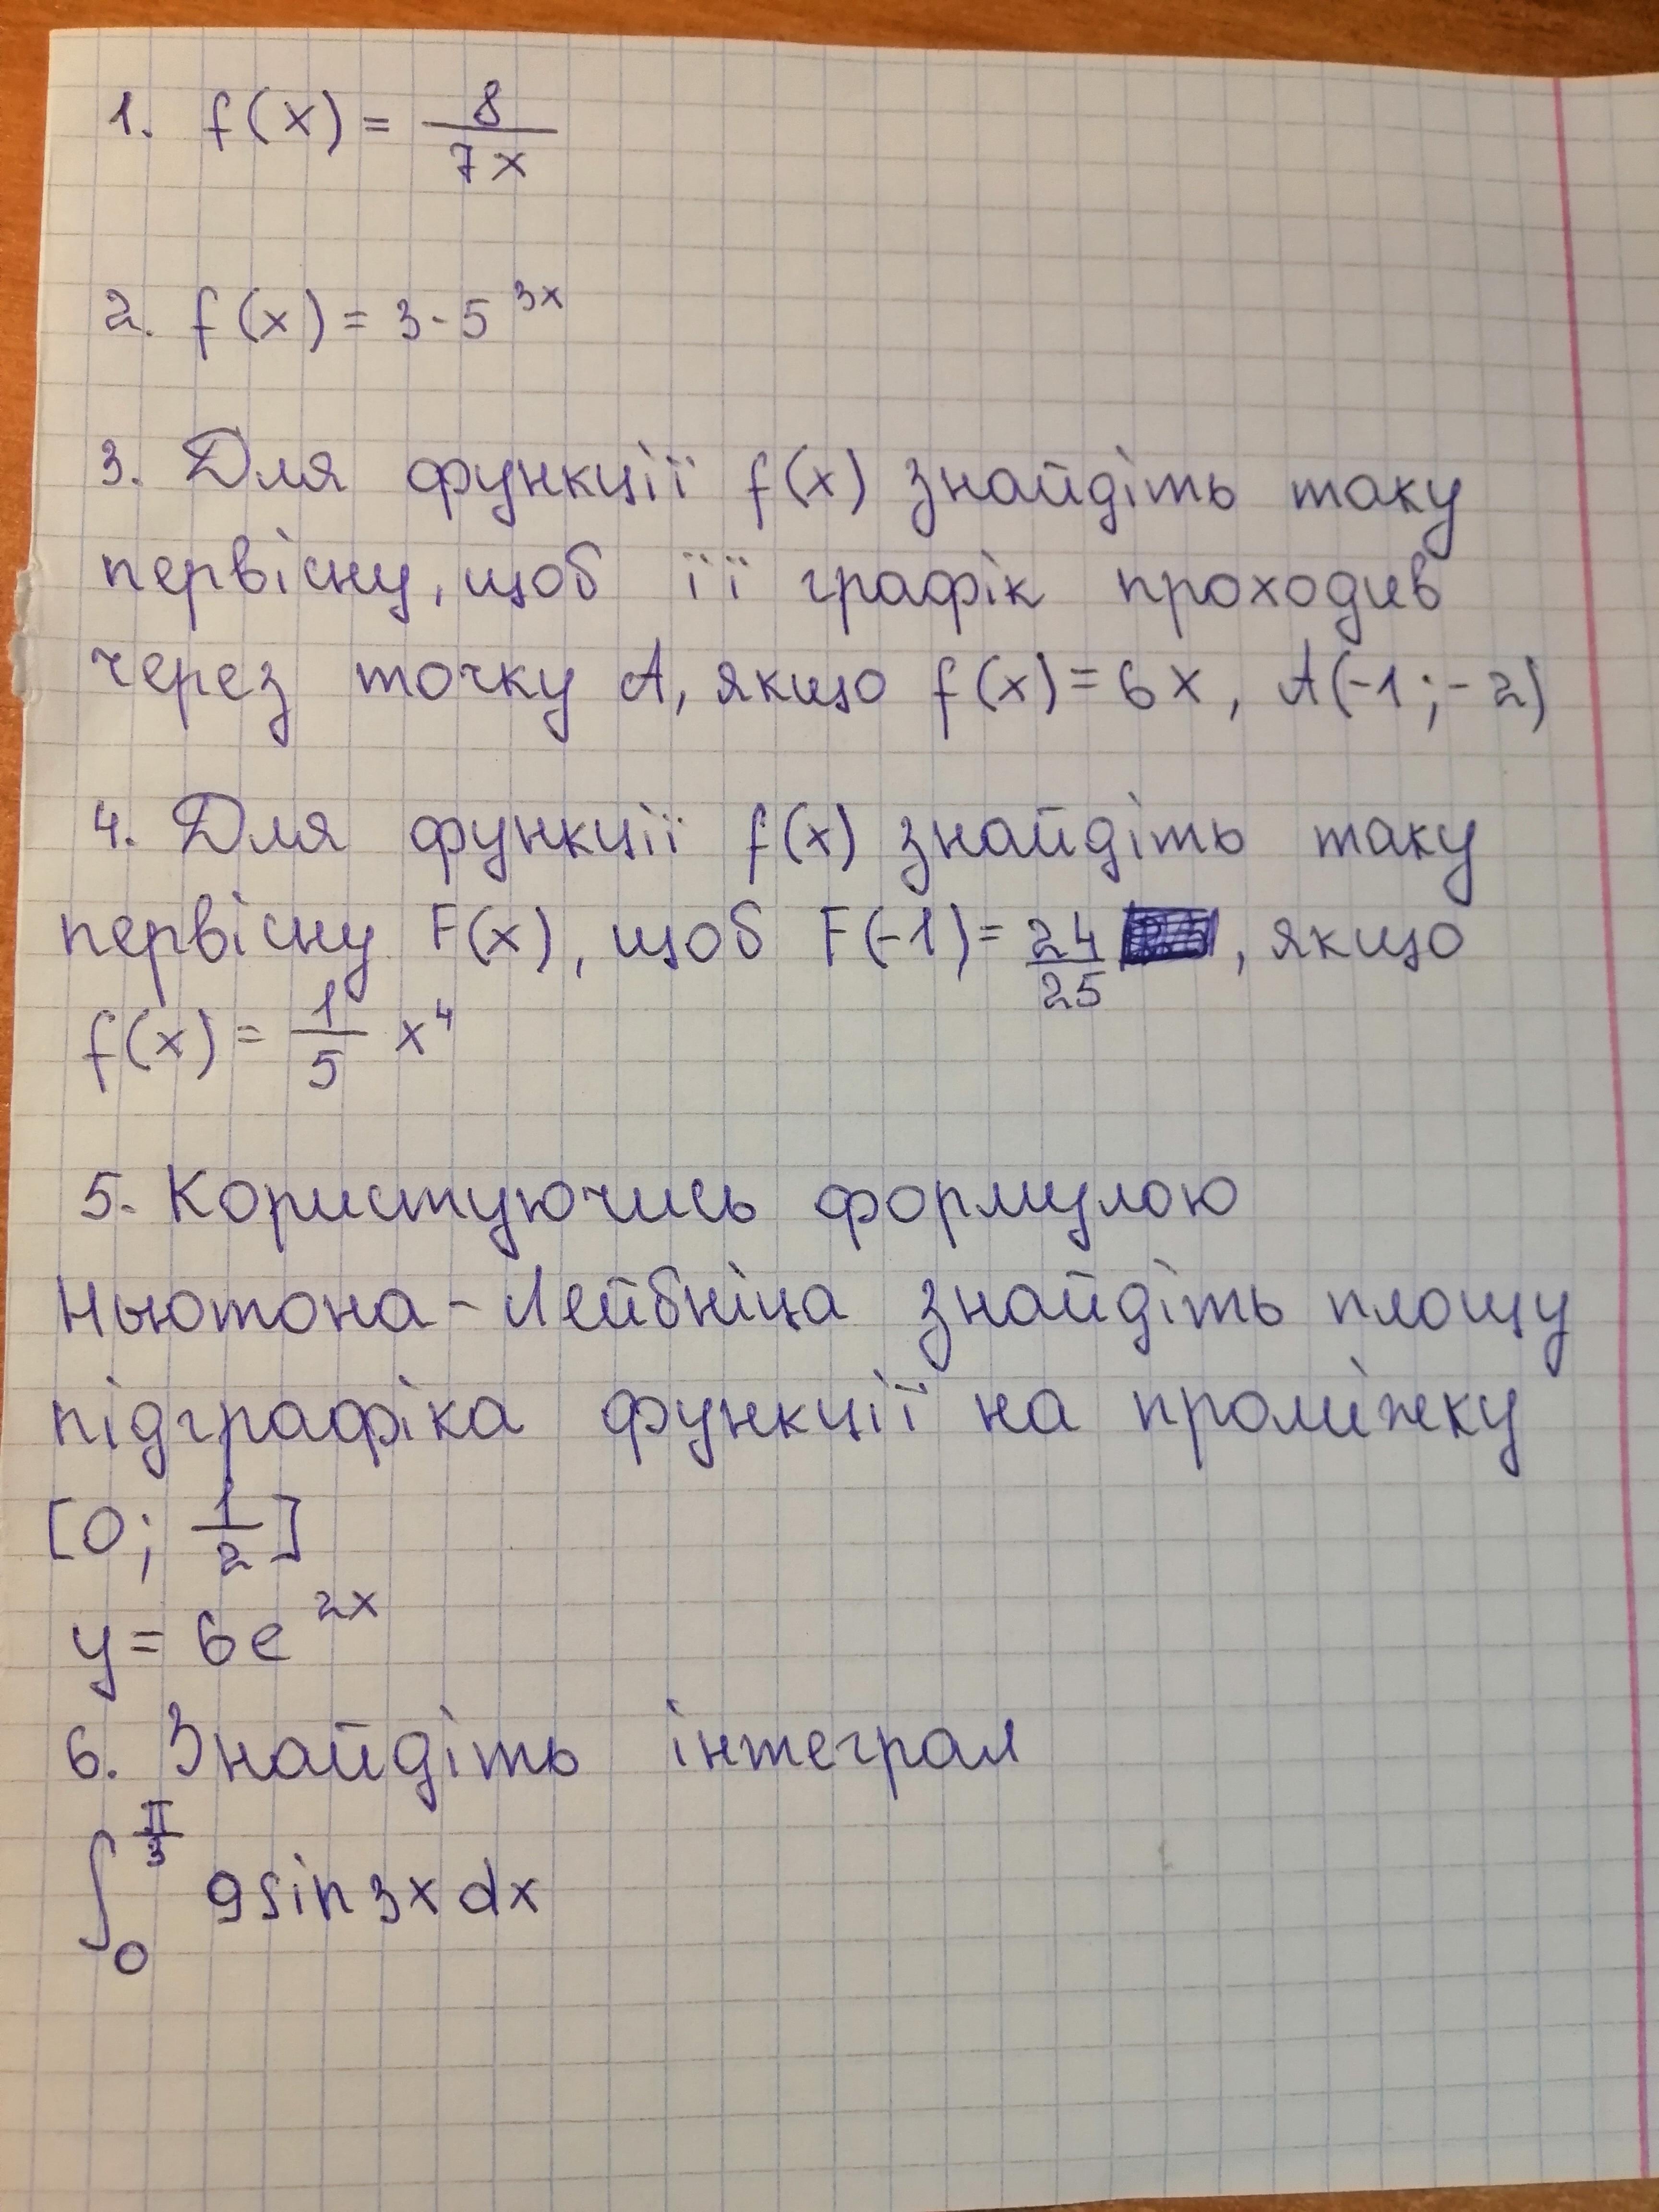 1. f(x) = 8/7x
2. f(x) = 3 · 5^3x
3. Для функції f(x) знайдіть таку
первісну, щоб її графік проходив
через точку А, якщо f(x) = 6x, А(-1; -2)
4. Для функції f(x) знайдіть таку
первісну F(x), щоб F(-1) = 24/25, якщо
f(x) = 1/5 x^4
5. Користуючись формулою
Ньютона - Лейбніца знайдіть площу
підграфіка функції на проміжку
[0; 1/2]
y = 6e^2x
6. Знайдіть інтеграл
∫_0^π/3 9sin3x dx